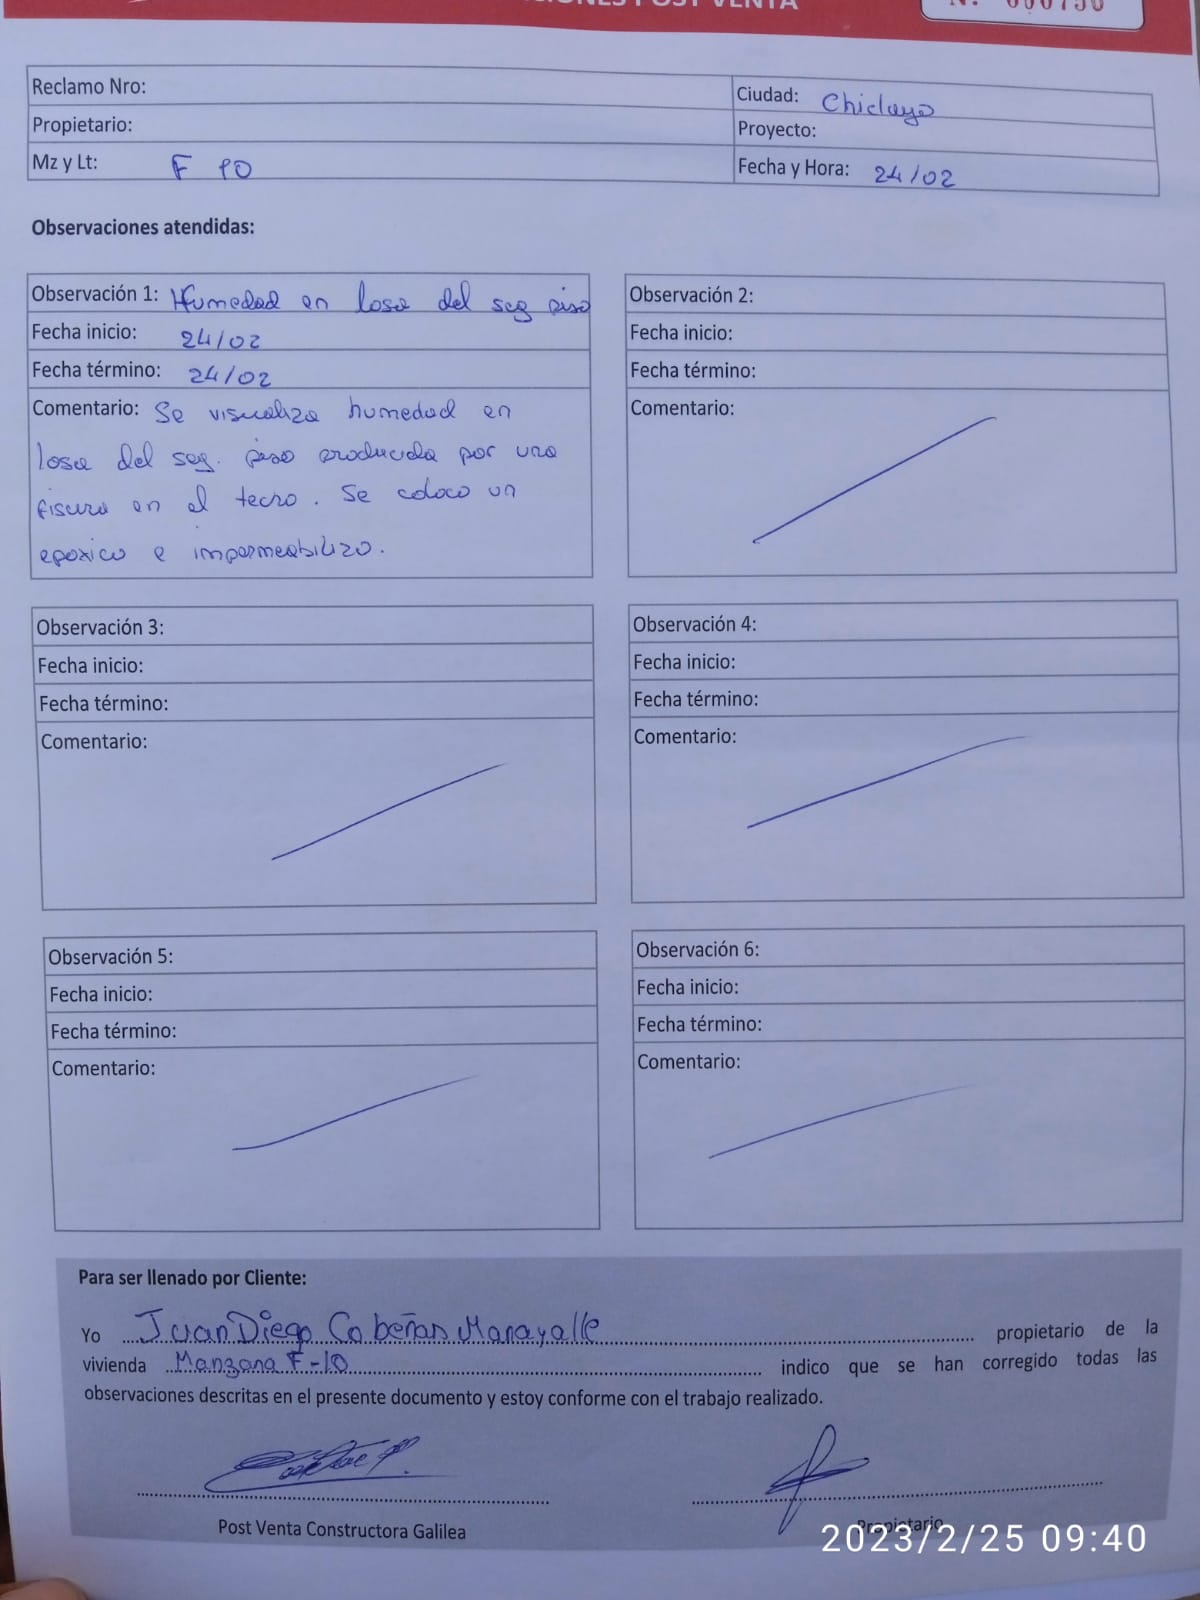 POST VENTA
Reclamo Nro:
Ciudad: Chiclayo
Propietario:
Proyecto:
Mz y Lt: F 10
Fecha y Hora: 24/02
Observaciones atendidas:
Observación 1: Humedad en losa del seg piso
Fecha inicio: 24/02
Fecha término: 24/02
Comentario: Se visualiza humedad en
losa del seg. piso producida por una
fisura en el techo. Se coloco un
epoxico e impermeabilizo.
Observación 2:
Fecha inicio:
Fecha término:
Comentario:
Observación 3:
Fecha inicio:
Fecha término:
Comentario:
Observación 4:
Fecha inicio:
Fecha término:
Comentario:
Observación 5:
Fecha inicio:
Fecha término:
Comentario:
Observación 6:
Fecha inicio:
Fecha término:
Comentario:
Para ser llenado por Cliente:
Yo Juan Diego Cabeñas Manayalle propietario de la
vivienda Manzana F-10 indico que se han corregido todas las
observaciones descritas en el presente documento y estoy conforme con el trabajo realizado.
Post Venta Constructora Galilea
Propietario
2023/2/25 09:40